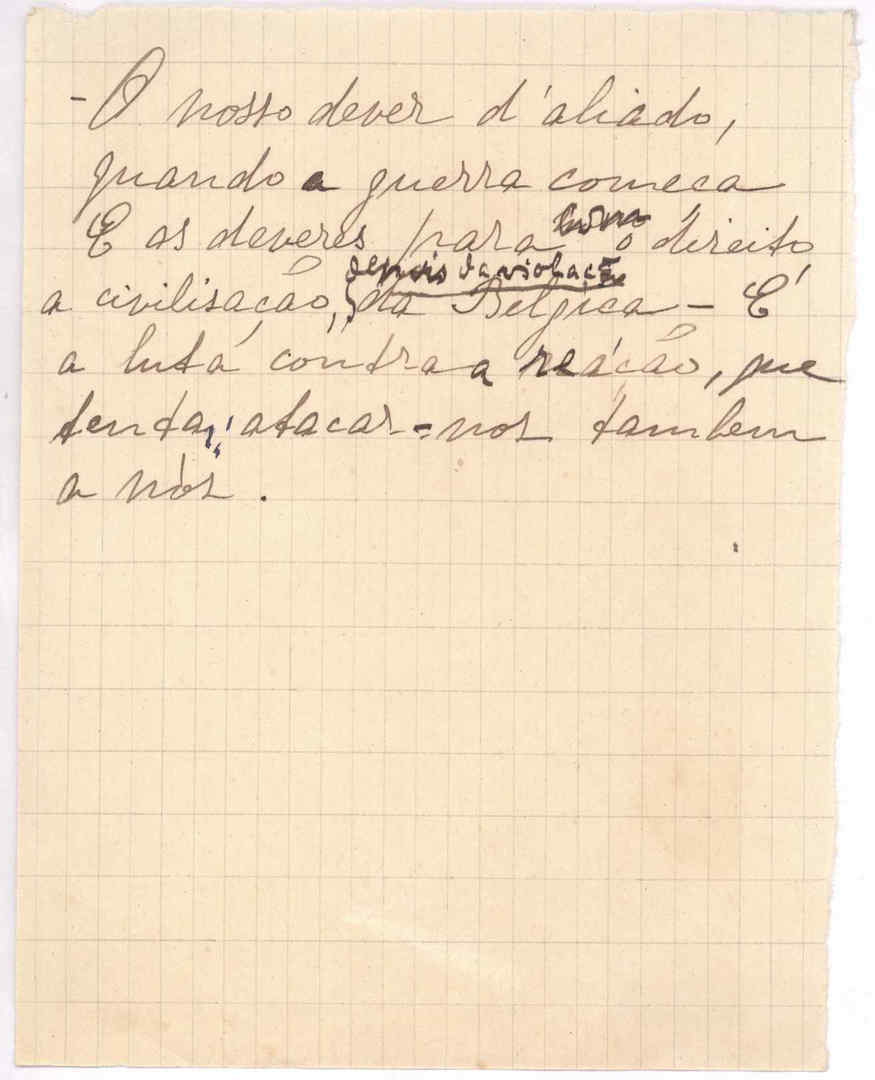 - O nosso dever d'aliado,
quando a guerra começa
E os deveres para com o direito
a civilisação, depois da violação
da Belgica - É
a luta contra a reáção, que
tenta, atacar-nos tambem
a nós.